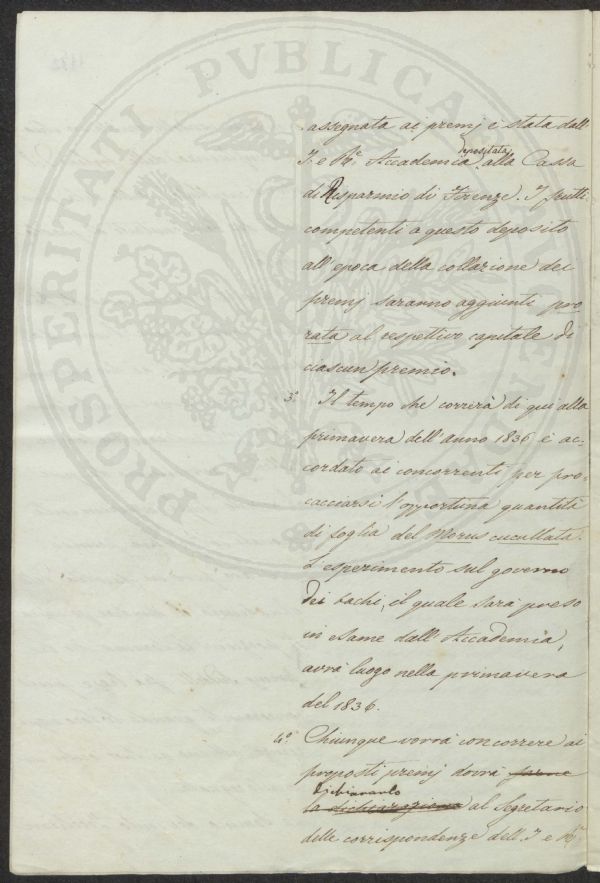 PROSPERITATI PVBLICAE AVGENDAE
assegnata ai premj è stata dall'
I. e R.e Accademia depositata alla Cassa
di Risparmio di Firenze. I frutti
competenti a questo deposito
all'epoca della collazione dei
premj saranno aggiunti pro-
rata al respettivo capitale di
ciascun premio.
3.° Il tempo che correrà di qui alla
primavera dell'anno 1836 è ac-
cordato ai concorrenti per pro-
cacciarsi l'opportuna quantità
di foglia del Morus cucullata.
L'esperimento sul governo
dei bachi, il quale sarà preso
in esame dall'Accademia,
avrà luogo nella primavera
del 1836.
4.° Chiunque vorrà concorrere ai
proposti premj dovrà farne
dichiararlo
la dichiarazione al Segretario
delle corrispondenze dell'I. e R.e